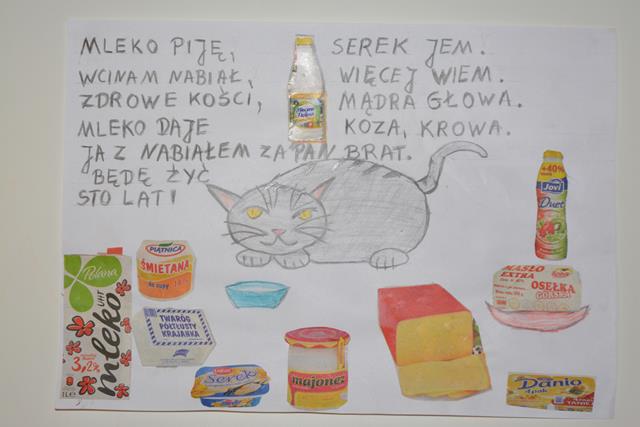 MLEKO PIJĘ, SEREK JEM.
WCINAM NABIAŁ, WIĘCEJ WIEM.
ZDROWE KOŚCI, MĄDRA GŁOWA.
MLEKO DAJE KOZA, KROWA.
JA Z NABIAŁEM ZA PAN BRAT.
BĘDĘ ŻYĆ
STO LAT!
+40%
Jovi
Duet
PIĄTNICA
ŚMIETANA
do zupy 18%
Polana
mleko UHT
3,2%
1L
TWARÓG
PÓŁTŁUSTY
KRAJANKA
Serek
majonez
MASŁO
EXTRA
OSEŁKA
GÓRSKA
Danio
4pak